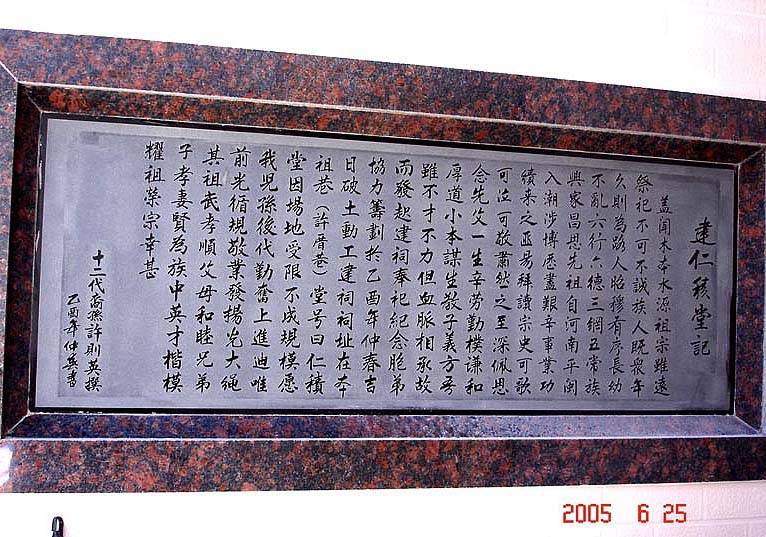 建仁積堂記
蓋聞木本水源祖宗雖遠
祭祀不可不誠族人既衆年
久則為路人昭穆有序長幼
不亂六行六德三綱五常族
興家昌思先祖自河南平閩
入潮涉博歷盡艱辛事業功
績来之函易拜讀宗史可歌
可泣可敬肅然之至深佩思
念先父一生辛劳勤樸謙和
厚道小本謀生教子義方
雖不才不力但血脈相承故
而發起建祠奉祀紀念胞弟
協力籌劃於乙酉年仲春吉
日破土動工建祠祠址在本
祖巷（許厝巷）堂号曰仁積
堂因場地受限不成規模愿
我児孫後代勤奮上進迪唯
前光循規敬業發揚光大绳
其祖武孝順父母和睦兄弟
子孝妻賢為族中英才楷模
耀祖榮宗幸甚
十二代裔孫許則英撰
乙酉年仲英書
2005 6 25